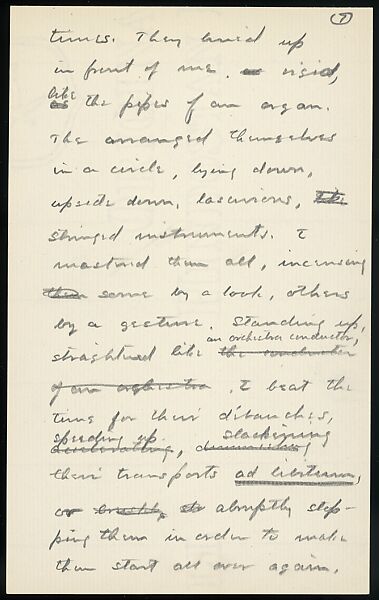 7
times. They lined up
in front of me, as rigid,
like
as the pipes of an organ.
The arranged themselves
in a circle, lying down,
upside down, lascivious, like
stringed instruments. I
mastered them all, incensing
them some by a look, others
by a gesture. Standing up,
an orchestra conductor,
straightened like the conductor
of an orchestra, I beat the
time for their debauches,
speeding up slackening
accelerating, diminishing
their transports ad libitum,
or bruskly, sto abruptly stop-
ping them in order to make
them start all over again.